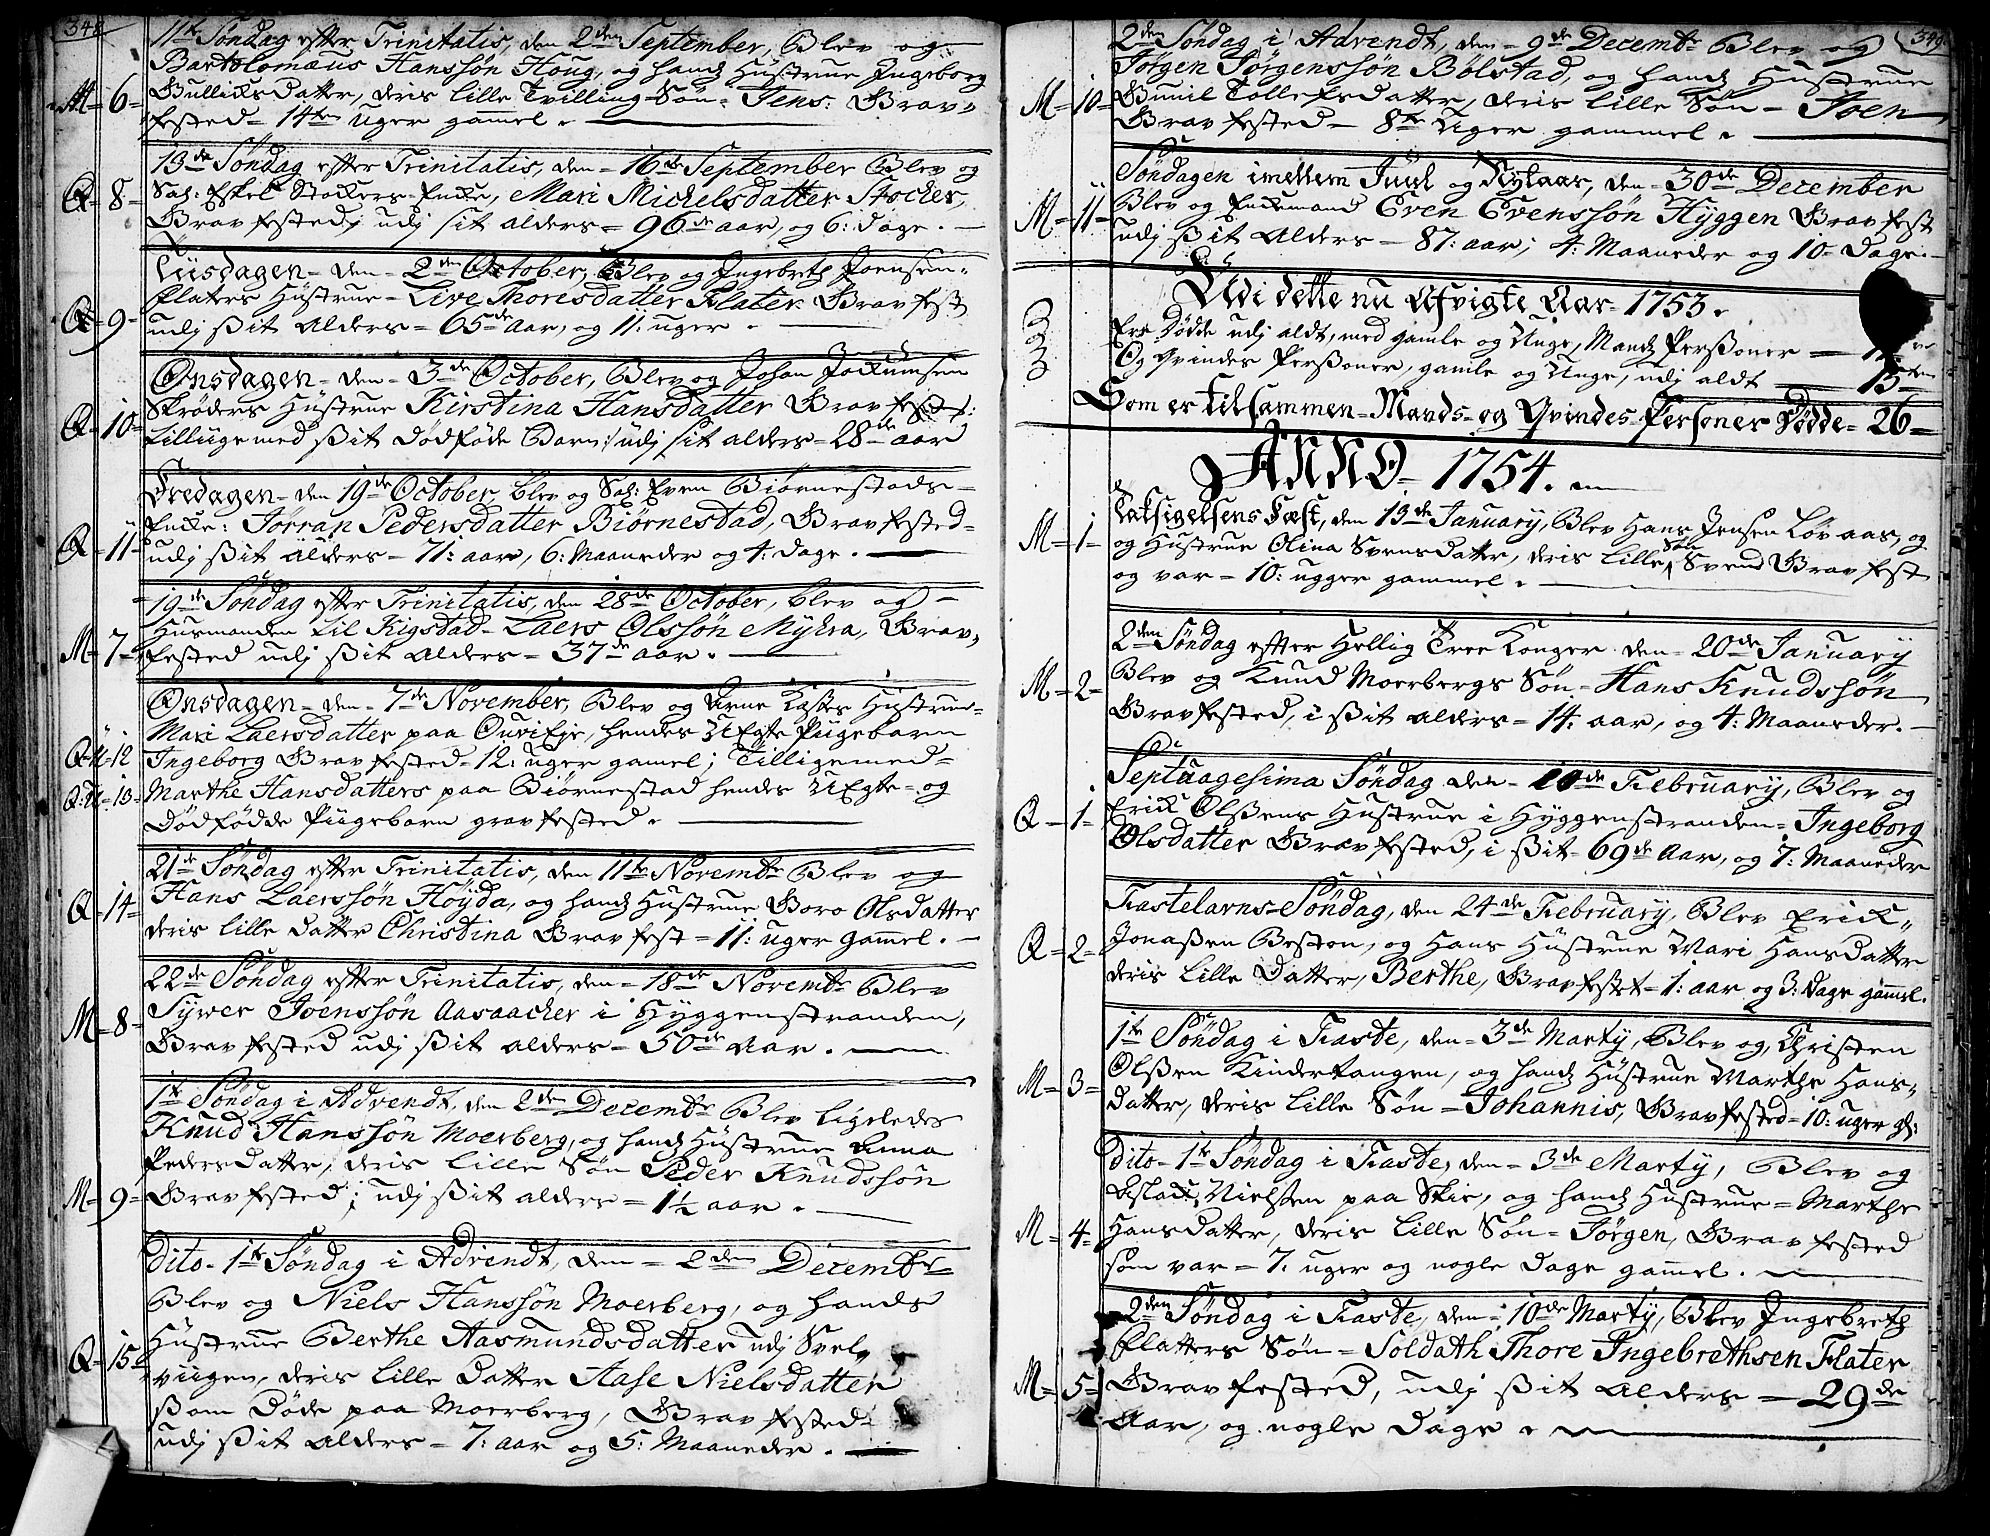 348
11te Søndag efter Trinitatis, den 2den September, Blev og
Bartolomæus Hanssøn Houg, og hands Hustrue Ingeborg
Gullicksdatter, deris lille Tvilling-Søn = Jens: Grav=
M = 6 = fested = 14ten uger gamel. —
13de Søndag efter Trinitatis, den = 16de September Blev og
Q = 8 = Sal: Eskel Stockers Encke, Mari Michelsdatter Stocker,
Gravfested udj sit alders = 96de aar, og 6: dage. —
Tiisdagen = den = 2den October, Blev og Ingebreth Joensen=
Flaters Hustrue = Live Thoresdatter Flater Gravfest
Q = 9 = udj ßit Alders = 65de Aar, og 11: uger. —
Onsdagen = den = 3de October, Blev og Johan Jockumsen
Skrøders Hustrue Kirstina Hansdatter Gravfested /:
Q = 10 = tilliigemed ßit dødføde Barn :/ udj sit alders = 28de aar
Fredagen = den 19de October, blev og Sal: Even Biørnestads=
Encke: Jørran Pedersdatter Biørnestad, Gravfested=
Q = 11 = udj ßit Alders = 71: aar, 6: Maaneder og 4: dage. —
19de Søndag efter Trinitatis, den 28de October, blev og =
Husmanden til Kigstad = Laers Olssøn Myhra, Grav=
M = 7 = fested udj ßit Alders = 37de aar. —
Onsdagen = den = 7de November, Blev og Arne Kaskes Hustrue=
Mari Laersdatter paa OuriEje, hendes UEgte Piigebarn
Q: U = 12 Ingeborg Gravfested = 12: uger gamel; Tilligemed=
Q: U = 13 = Marthe Hansdatters paa Biørnestad hendes UEgte = og
Dødfødde Piigebarn gravfested. —
21de Søndag efter Trinitatis, den 11te Novembr Blev og
Q = 14 = Hans Laerssøn Høyda, og hands Hustrue Boro Olsdatter
deris lille datter Christina Gravfest = 11: uger gamel. —
22de Søndag efter Trinitatis, den = 18de Novembr Blev
M = 8 = Syver Joenssøn Aasaacker i Hyggenstranden,
Gravfested udj ßit alders = 50de Aar. —
1te Søndag i Advendt, den 2den Decembr Blev ligeledes
Knud Hanssøn Moerberg, og hands Hustrue Anna
Pedersdatter, deris lille Søn Peder Knudssøn
M = 9 = Gravfested; udj ßit alders = 1½ aar. —
Dito = 1te Søndag i Advendt, den = 2den Decembr
Blev og Niels Hanssøn Moerberg, og hands
Hustrue Berthe Aasmundsdatter udj Svel=
Q = 15 = viigen, deris lille Datter Aase Nielsdatter
ßom Døde paa Moerberg, Gravfested
udj ßit Alders = 7: aar og 5: Maaneder. —
349
2den Søndag i Advendt, den = 9de Decembr Blev og
Jørgen Jørgenssøn Bølstad, og hands Hustrue
M = 10 = Gunil Tollefsdatter, deris lille Søn = Joen
Gravfested = 8te Uger gammel. —
Søndagen imellem Juul og Nytaar, den = 30de December
M = 11 = Blev og Enckemand Even Evenssøn Hyggen Gravfest
udj ßit Alders = 87: aar; 4: Maaneder og 10 = Dage. —
Udi dette nu Afvigte Aar = 1753.
Ere Dødde udj aldt, med gamle og Unge, Mands Perßoner —
Og Qvindes Perßoner, gamle og Unge, udj aldt — 15ten
Som er tilsammen = Mands = og Qvindes Personer Dødde = 26 =
ANNO = 1754.
Taksigelsens Fæst, den 13de January, Blev Hans Jensen Løvaas, og
M = 1 = og Hustrue Olina Svensdatter, deris lille Søn Svend Gravfest
og var = 10: ugger gammel. —
2den Søndag effter Hellig Tree Konger den = 20de January
M = 2 = Blev og Knud Moerbergs Søn = Hans Knudssøn
Gravfested, i ßit alders = 14: aar, og 4: Maaneder. —
Septuagesima Søndag den = 10de February, Blev og
Q = 1 = Erick Olßens Hustrue i Hyggenstranden = Ingeborg
Olsdatter Gravfested, i ßit = 69de Aar, og 7: Maaneder
Fastelavns = Søndag, den 24de February, Blev Erick=
Q = 2 = Jonaßen Beston, og Hans Hustrue Mari Hansdatter
deris lille Datter, Berthe, Gravfestet = 1: aar og 3: dage gamel.
1te Søndag i Faste, den = 3de Marty, Blev og Christen
Olßen Kindertangen, og hands Hustrue Marthe Hans=
M = 3 = datter, deris lille Søn = Johannis, Gravfested = 10: uger gl:
Dito = 1te Søndag i Faste, den = 3de Marty, Blev og
Nielsen paa Skie, og hands Hustrue = Marthe
M = 4 = Hansdatter, deris lille Søn = Jørgen, Gravfested
som var = 7. uger og nogle Dage gamel. —
2den Søndag i Faste, den = 10de Marty, Blev Ingebreth
Flatters Søn = Soldath Thore Ingebrethsen Flater
M = 5 = Gravfested, udj ßit Alders = 29de
Aar, og nogle Dage. —